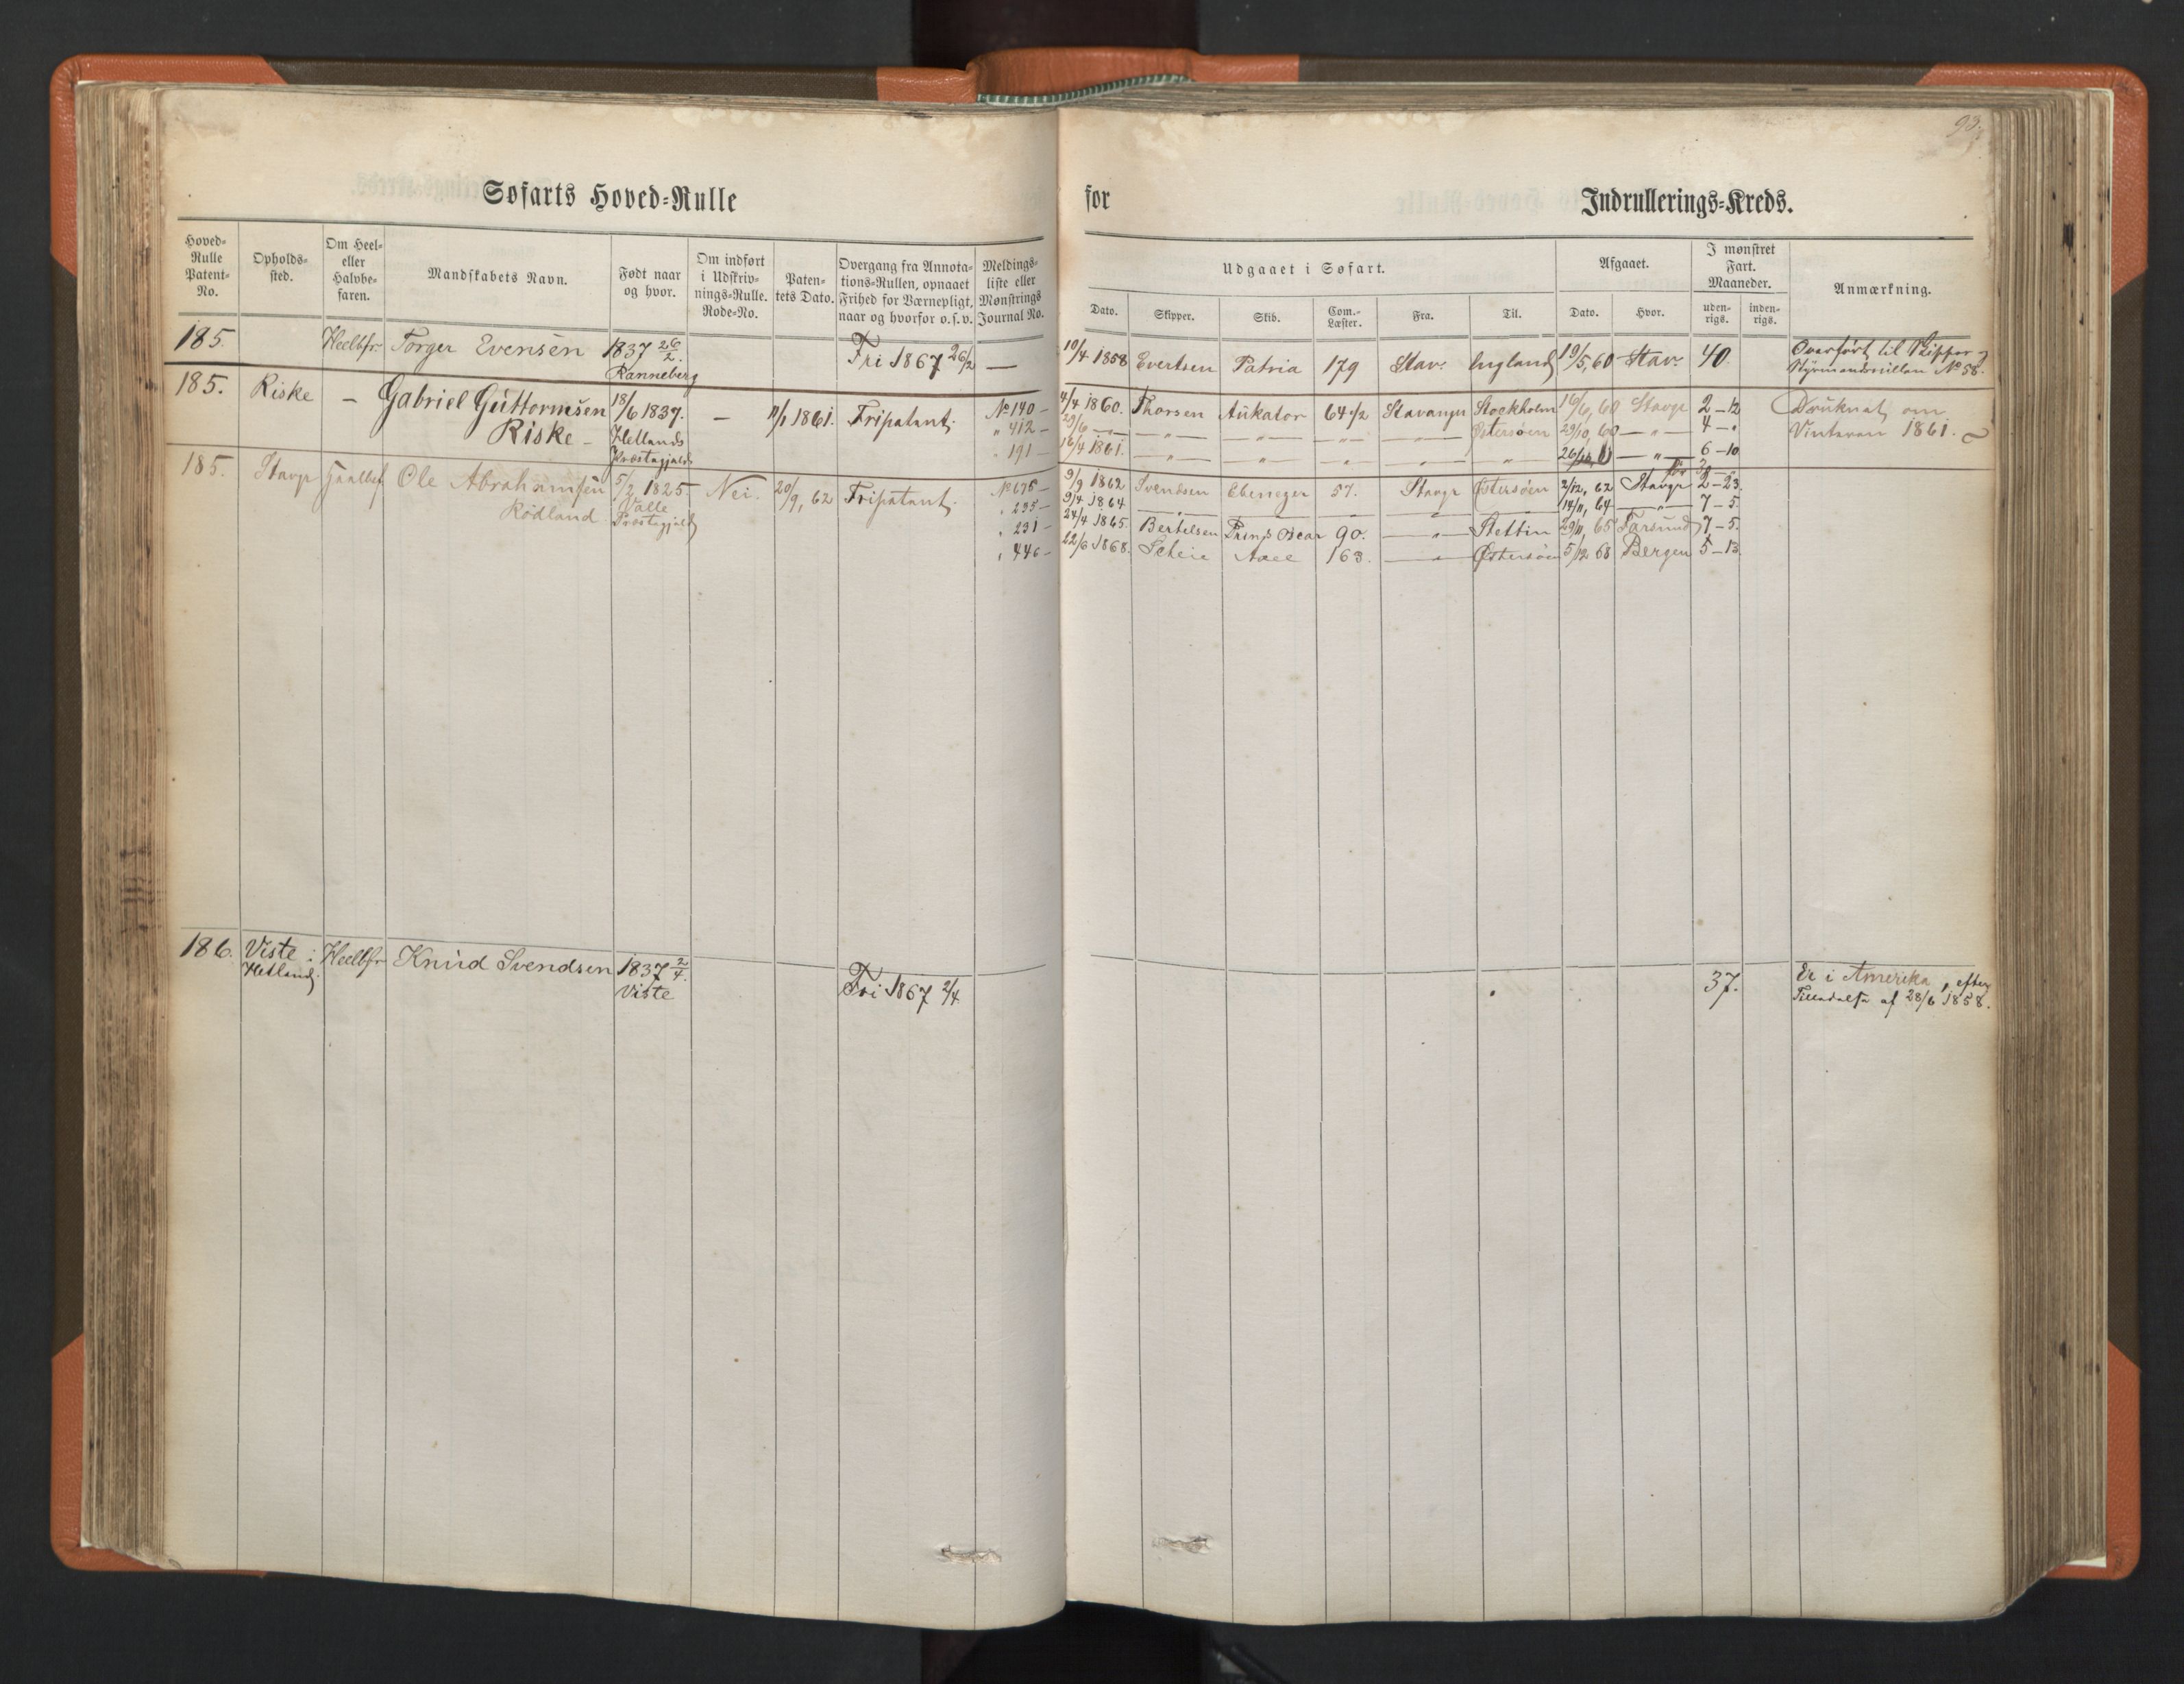 93.
Søfarts Hoved-Rulle for Indrullerings-Kreds.
Hoved-Rulle Patent-No.
Opholds-sted.
Om Heel- eller Halvbe-faren.
Mandskabets Navn.
Født naar og hvor.
Om indført i Udskriv-nings-Rulle. Rode-No.
Paten-tets Dato.
Overgang fra Annota-tions-Rullen, opnaaet Frihed for Værnepligt, naar og hvorfor o.s.v.
Meldings-liste eller Mønstrings Journal No.
Udgaaet i Søfart.
Dato. Skipper. Skib. Com.-Læster. Fra. Til.
Afgaaet.
Dato. Hvor.
I mønstret Fart. Maaneder.
uden-rigs. inden-rigs.
Anmærkning.
185. Heelbfr. Torger Evensen 1837 26/2. Fri 1867 26/2 — 10/4 1858 Evertsen Patria 179 Stav. England 19/5, 60 Stav. 40. Overført til Skipper-
Ranneberg Styrmandsrullen No 58.
185. Riske — Gabriel Guttormsen 18/6 1837. — 11/1 1861. Fripatent. No 140 — 4/4 1860. Thorsen Aukator 64 1/2 Stavanger Stockholm 16/6, 60 Stavgr 2 — 12 Druknet om
Riske — Hetlands " 412 — 20/6 — " — — " — " — " — — " — Østersøen 29/10, 60 — " — 4 — " Vinteren 1861.
Præstegjeld " 191 — 16/4 1861. — " — " " — " — " — " — 6 — 10
185. Stavgr Heelbef. Ole Abrahamsen 5/2 1825. Nei. 20/9, 62 Fripatent. No 675 — 9/9 1862 Svendsen Ebenezer 57. Stavgr Østersøen 2/12, 62 Stavgr 2 — 23.
Rødland Valle " 235 — 9/4 1864 — " — — " — — " — — " — — " — 14/11, 64 — " — 7 — 5.
Præstegjeld " 231 — 24/4 1865. Bertelsen Prins Oscar 90. — " — Stettin 29/11, 65 Farsund 7 — 5.
" 446 — 22/6 1868. Scheie Axel 163. — " — Østersøen 5/12 68 Bergen 5 — 13.
186. Viste i Heelbfr Knud Svendsen 1837 2/4. Fri 1867 2/4 37. Er i Amerika, efter
Hetland. Viste Tilladelse af 28/6 1858.